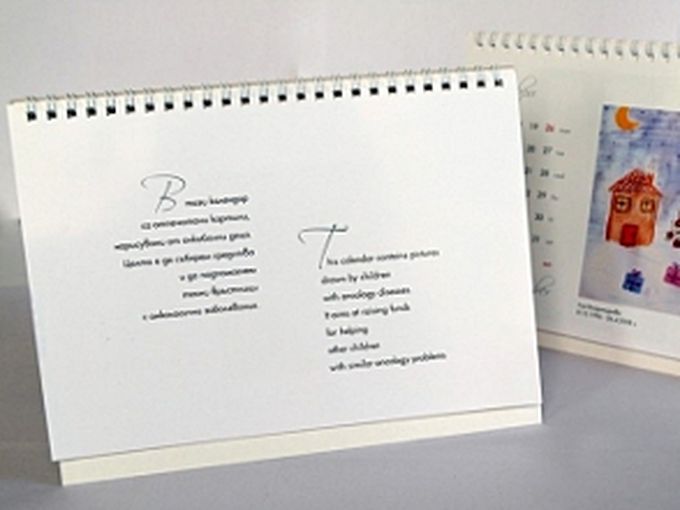 В този календар
са отпечатани картини,
нарисувани от онкоболни деца.
Целта е да съберем средства
и да подпомогнем
с онкологични заболявания
This calendar contains pictures
drawn by children
with oncology diseases
It aims at raising funds
for helping
other children
with similar oncology problems
19 26
27
21 28
29
31